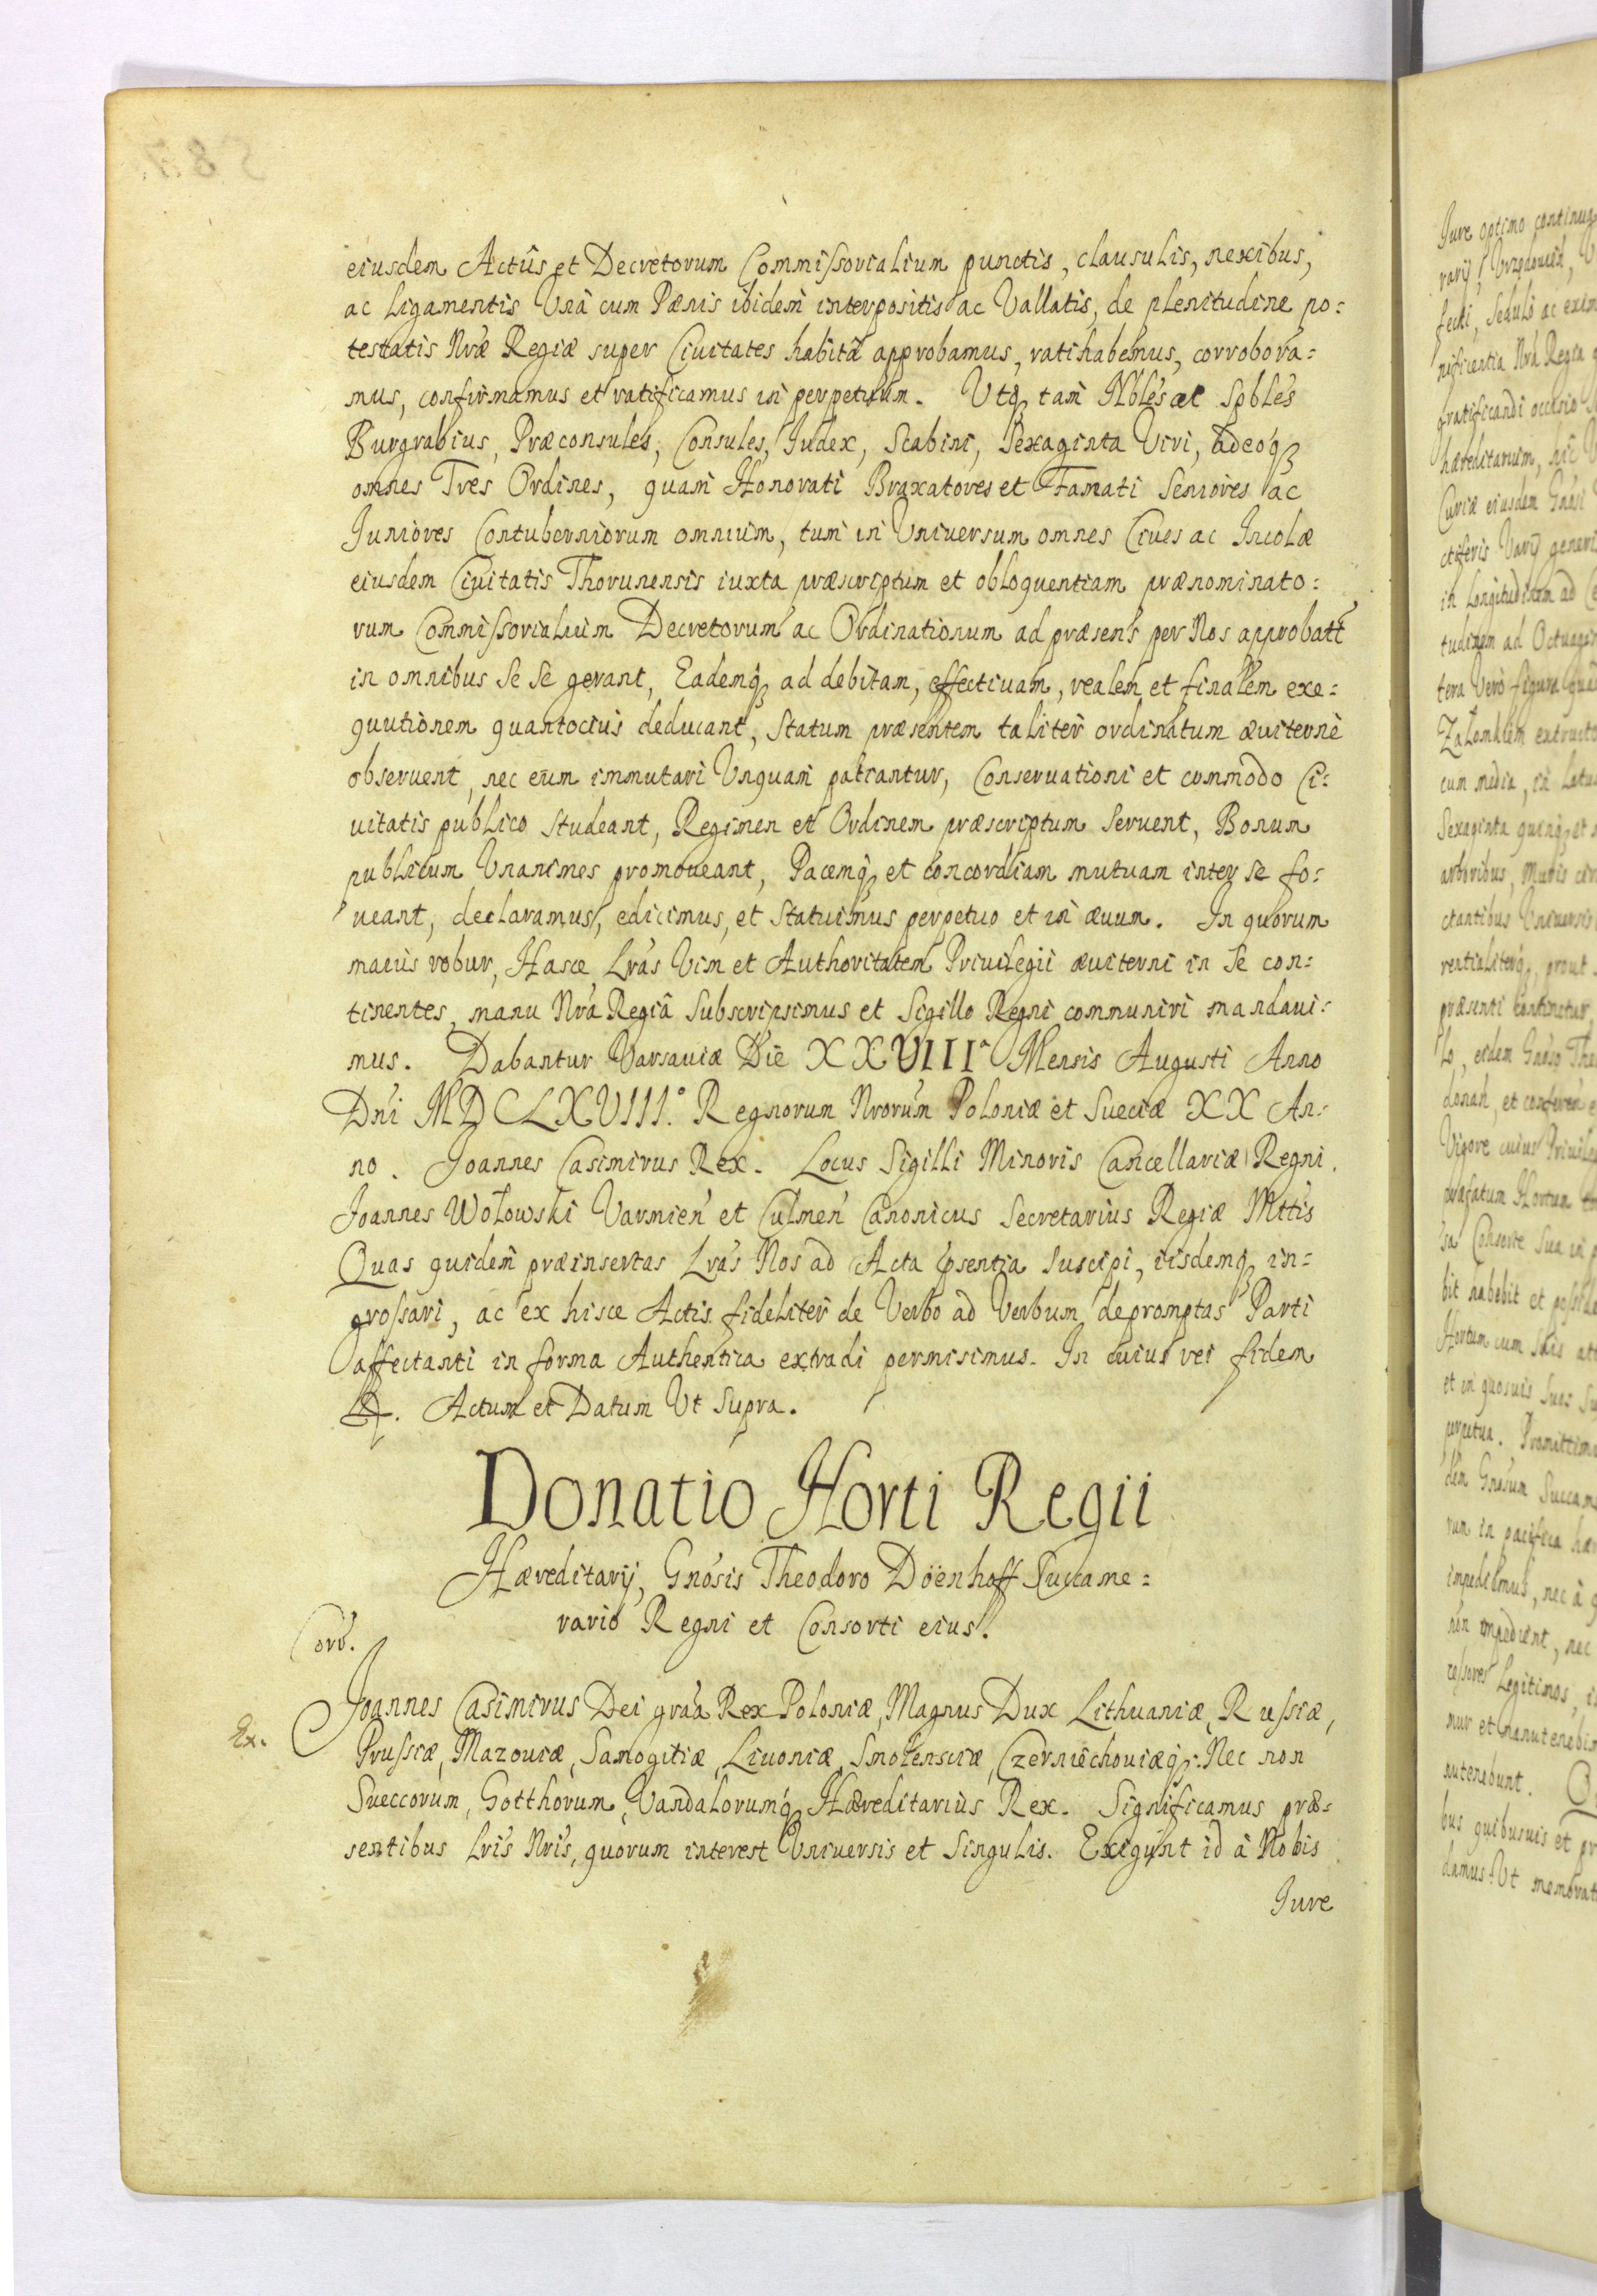 eiusdem Actûs et Decretorum Commissorialium punctis, clausulis, nexibus,
ac ligamentis Vnà cum Pænis ibidem interpositis ac Vallatis, de plenitudine po:
testatis Nræ Regiæ super Ciuitates habitâ approbamus, ratihabemus, corrobora:
mus, confirmamus et ratificamus in perpetuum. Utq3 tam Nbles ac Spbles
Burgrabius, Præconsules, Consules, Iudex, Scabini, Sexaginta Viri, adeoq3
omnes Tres Ordines, quam Honorati Braxatores et Famati Seniores ac
Juniores Contuberniorum omnium, tum in Vniuersum omnes Ciues ac Incolæ
eiusdem Ciuitatis Thorunensis iuxta præscriptum et obloquentiam prænominato:
rum Commissorialium Decretorum ac Ordinationum ad præsens per Nos approbatt
in omnibus se se gerant, Eademq3 ad debitam, effectiuam, realem et finalem exe:
quutionem quantocius deducant, Statum præsentem taliter ordinatum æuiternè
obseruent, nec eum immutari Vnquam patiantur, Conseruationi et commodo Ci:
uitatis publico studeant, Regimen et Ordinem præscriptum seruent, Bonum
publicum Vnanimes promoueant, Pacemq3 et concordiam mutuam inter se fo:
ueant, declaramus, edicimus, et statuimus perpetuo et in æuum. In quorum
maius robur, Hasce Lras Vim et Authoritatem Priuilegii æuiterni in se con:
tinentes, manu Nrâ Regiâ subscripsimus et Sigillo Regni communiri mandaui:
mus. Dabantur Varsauiæ Die XXVIIIa Mensis Augusti Anno
Dni MDCLXVIII.o Regnorum Nrorum Poloniæ et Sueciæ XX An:
no. Joannes Casimirus Rex. Locus Sigilli Minoris Cancellariæ Regni.
Joannes Wołowski Varmien et Culmen Canonicus Secretarius Regiæ Mttis
Quas quidem præinsertas Lras Nos ad Acta psentia suscipi, iisdemq3 in:
grossari, ac ex hisce Actis fideliter de Verbo ad Verbum depromptas Parti
affectanti in forma Authentica extradi permisimus. In cuius rei fidem
Actum et Datum Ut Supra.
Donatio Horti Regii
Hæreditarÿ, Gnosis Theodoro Döenhoff Succame:
rario Regni et Consorti eius.
Corr.
Joannes Casimirus Dei graa Rex Poloniæ, Magnus Dux Lithuaniæ, Russiæ,
Ex.
Prussiæ, Mazouiæ, Samogitiæ, Liuoniæ, Smolensciæ, Czerniechouiæq3. Nec non
Sueccorum, Gotthorum, Vandalorumq3 Hæreditarius Rex. Significamus præ:
sentibus Lris Nris, quorum interest Vniuersis et Singulis. Exigunt id à Nobis
Iure